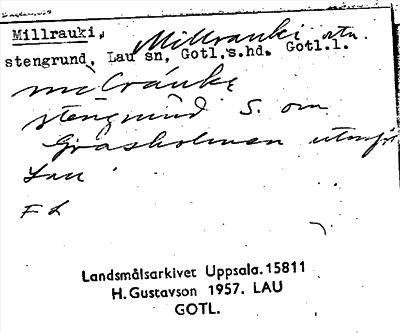 Millrauki,
Millrauki ortn.
stengrund, Lau sn, Gotl.s.hd. Gotl.l.
stengrund S. om
Gråsholmen utanför
Lau
F L
Landsmålsarkivet Uppsala. 15811
H. Gustavson 1957. LAU
GOTL.